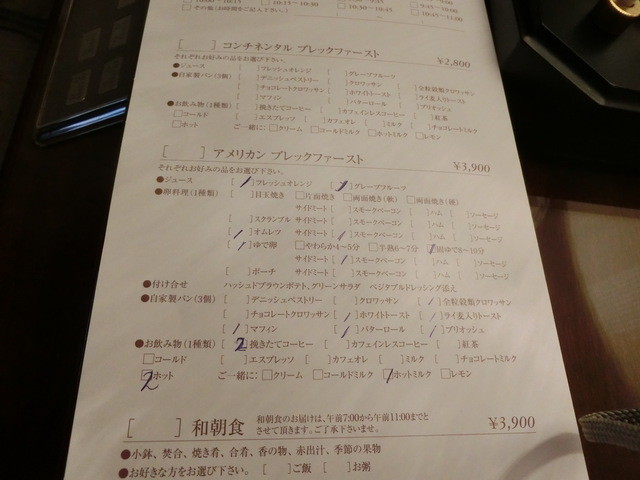 10:00〜10:15 10:15〜10:30
その他(お時間をご記入下さい。)
10:30〜10:45 10:45〜11:00
[ ] コンチネンタル ブレックファースト ¥2,800
それぞれお好みの品をお選び下さい。
●ジュース [ ]フレッシュオレンジ [ ]グレープフルーツ
●自家製パン(3個) [ ]デニッシュペストリー [ ]クロワッサン [ ]全粒穀類クロワッサン
[ ]チョコレートクロワッサン [ ]ホワイトトースト [ ]ライ麦入りトースト
[ ]マフィン [ ]バターロール [ ]ブリオッシュ
●お飲み物(1種類) [ ]挽きたてコーヒー [ ]カフェインレスコーヒー [ ]紅茶
□コールド [ ]エスプレッソ [ ]カフェオレ [ ]ミルク [ ]チョコレートミルク
□ホット ご一緒に:□クリーム □コールドミルク □ホットミルク □レモン
[ ] アメリカン ブレックファースト ¥3,900
それぞれお好みの品をお選び下さい。
●ジュース [/]フレッシュオレンジ [/]グレープフルーツ
●卵料理(1種類) [ ]目玉焼き □片面焼き □両面焼き(軟) □両面焼き(硬)
サイドミート [ ]スモークベーコン [ ]ハム [ ]ソーセージ
[ ]スクランブル サイドミート [ ]スモークベーコン [ ]ハム [ ]ソーセージ
[/]オムレツ サイドミート [/]スモークベーコン [ ]ハム [ ]ソーセージ
[/]ゆで卵 □やわらか4〜5分 □半熟6〜7分 □固ゆで9〜10分
サイドミート [/]スモークベーコン [ ]ハム [ ]ソーセージ
[ ]ポーチ サイドミート [ ]スモークベーコン [ ]ハム [ ]ソーセージ
●付け合せ ハッシュドブラウンポテト、グリーンサラダ ベジタブルドレッシング添え
●自家製パン(3個) [ ]デニッシュペストリー [ ]クロワッサン [/]全粒穀類クロワッサン
[ ]チョコレートクロワッサン [/]ホワイトトースト [/]ライ麦入りトースト
[/]マフィン [/]バターロール [/]ブリオッシュ
●お飲み物(1種類) [2]挽きたてコーヒー [ ]カフェインレスコーヒー [ ]紅茶
□コールド [ ]エスプレッソ [ ]カフェオレ [ ]ミルク [ ]チョコレートミルク
□ホット ご一緒に:□クリーム □コールドミルク □ホットミルク □レモン
2
[ ] 和朝食 和朝食のお届けは、午前7:00から午前11:00までと ¥3,900
させて頂きます。ご了承下さいませ。
●小鉢、焚合、焼き肴、合肴、香の物、赤出汁、季節の果物
●お好きな方をお選び下さい。 [ ]ご飯 [ ]お粥